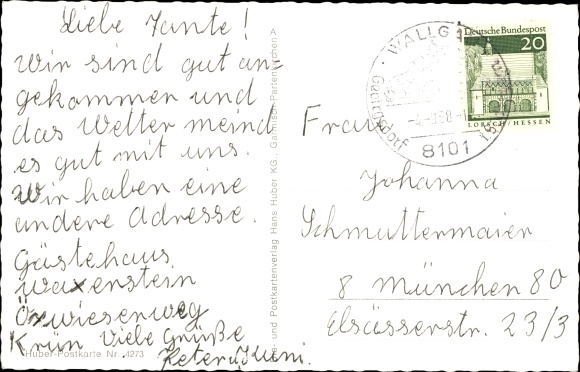 Liebe Tante!
Wir sind gut an-
gekommen und
das Wetter meind
es gut mit uns.
Wir haben eine
andere Adresse.
Gästehaus
Waxenstein
Krün Viele Grüße
Peter u.
Huber-Postkarte Nr. 4273
und Postkartenverlag Hans Huber KG. Garmisch-Partenkirchen
WALLGAU
8101
Deutsche Bundespost
20
LORSCH/HESSEN
Frau
Johanna
Schmuttermaier
8 München 80
Elsässerstr. 23/3